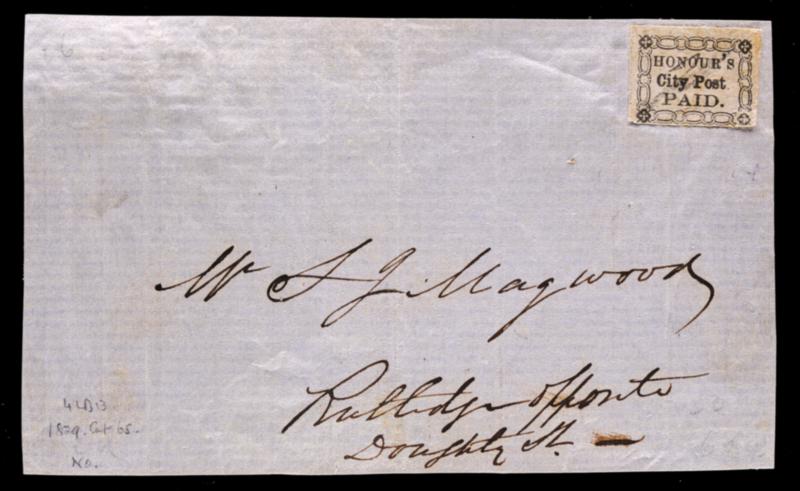 HONOUR'S
City Post
PAID.
Mr S J Magwood
Rutledge opposite
Doughty St.
4LB13.
No.